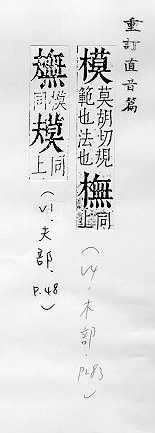 重訂直音篇
模 莫胡切規範也法也 橅 同上
(V4.木部.P283)
橅 模同 𢜮 同上
(V1.夫部.P.48)